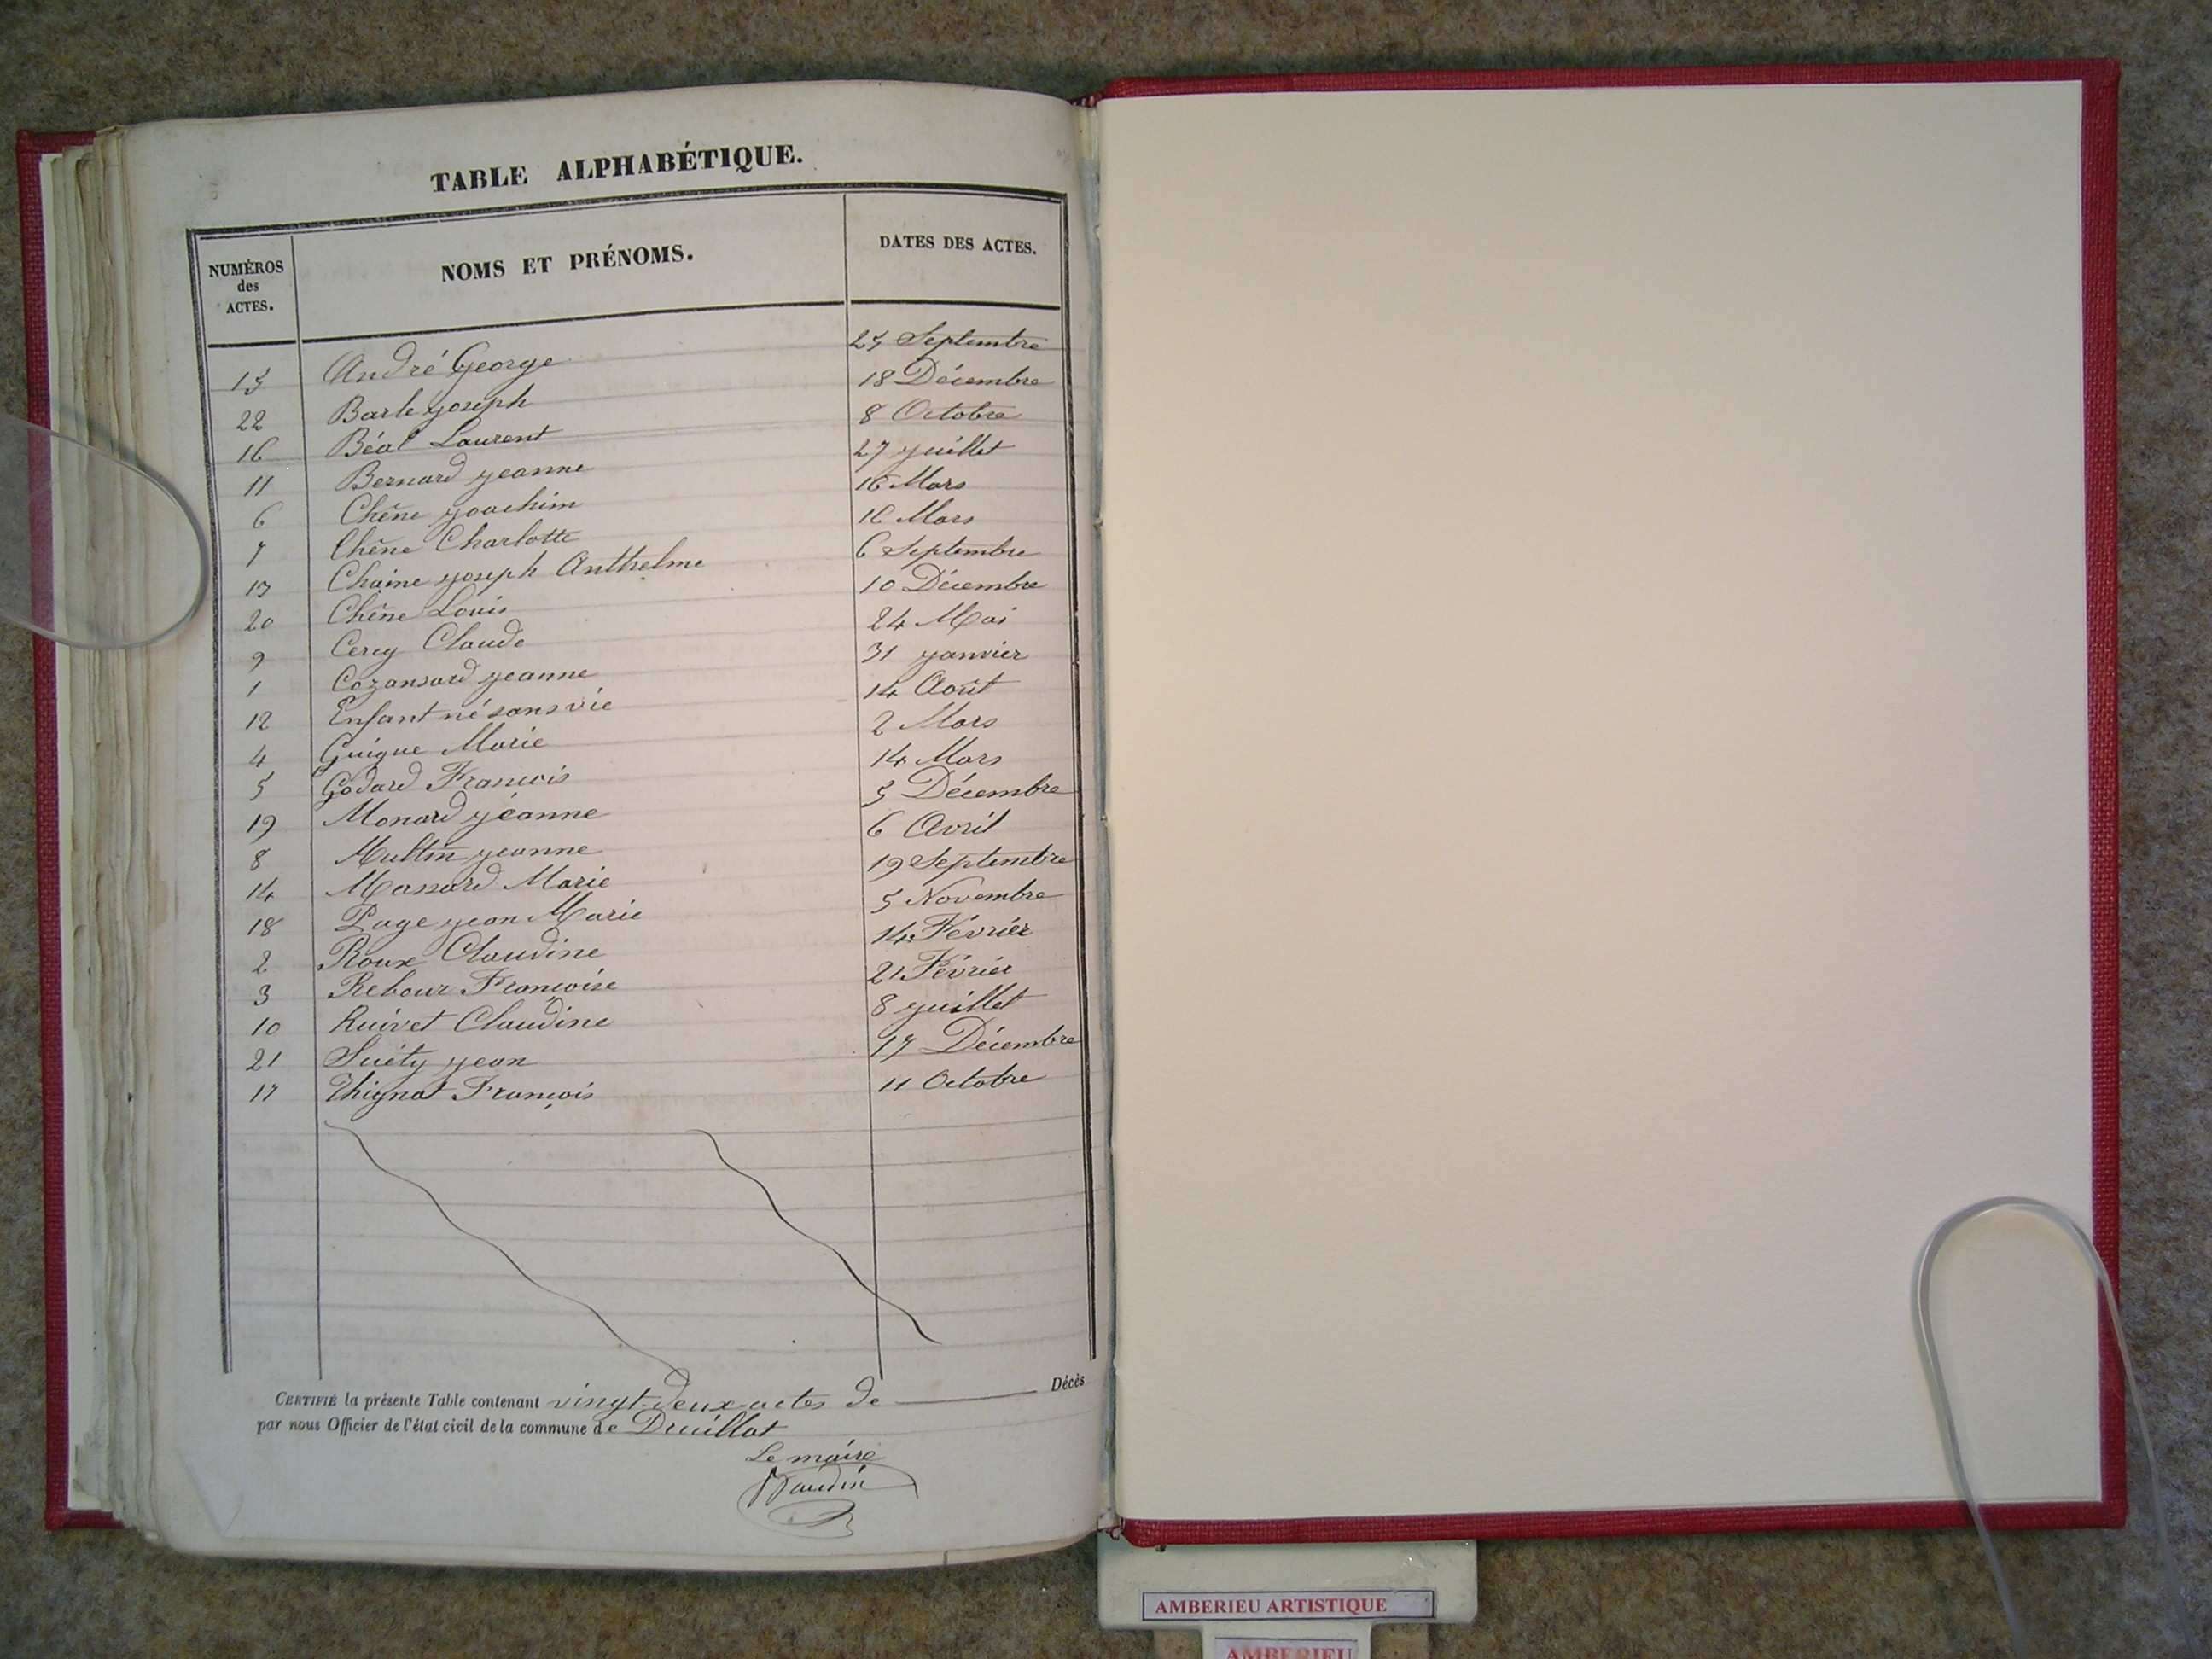 TABLE ALPHABÉTIQUE.
NUMÉROS des ACTES. NOMS ET PRÉNOMS. DATES DES ACTES.
15 André George 25 Septembre
22 Barle Joseph 18 Décembre
16 Béal Laurent 8 Octobre
11 Bernard Jeanne 27 Juillet
6 Chêne Joachim 16 Mars
7 Chêne Charlotte 16 Mars
13 Chaine Joseph Anthelme 6 Septembre
20 Chêne Louis 10 Décembre
9 Cery Claude 24 Mai
1 Cozansard Jeanne 31 Janvier
12 Enfant né sans vie 14 Août
4 Guigue Marie 2 Mars
5 Godard François 14 Mars
19 Monard Jeanne 5 Décembre
8 Multin Jeanne 6 Avril
14 Massard Marie 19 Septembre
18 Page Jean Marie 5 Novembre
2 Roux Claudine 14 Février
3 Rebour Françoise 21 Février
10 Ruivet Claudine 8 Juillet
21 Suéty Jean 17 Décembre
17 Thignat François 11 Octobre
CERTIFIÉ la présente Table contenant vingt-deux actes de Décès
par nous Officier de l'état civil de la commune de Druillat
Le maire
AMBERIEU ARTISTIQUE
AMBERIEU